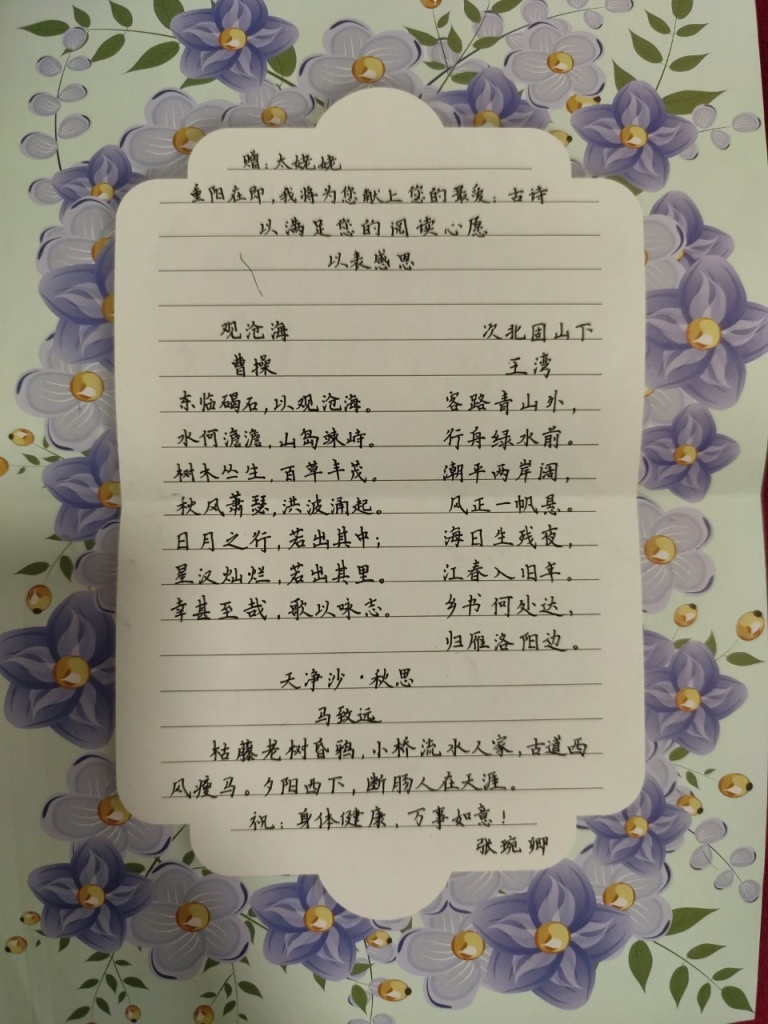 赠：太姥姥
重阳在即，我将为您献上您的最爱：古诗
以满足您的阅读心愿
以表感思
观沧海
曹操
东临碣石，以观沧海。
水何澹澹，山岛竦峙。
树木丛生，百草丰茂。
秋风萧瑟，洪波涌起。
日月之行，若出其中；
星汉灿烂，若出其里。
幸甚至哉，歌以咏志。
次北固山下
王湾
客路青山外，
行舟绿水前。
潮平两岸阔，
风正一帆悬。
海日生残夜，
江春入旧年。
乡书何处达，
归雁洛阳边。
天净沙·秋思
马致远
枯藤老树昏鸦，小桥流水人家，古道西
风瘦马。夕阳西下，断肠人在天涯。
祝：身体健康，万事如意！
张琬卿